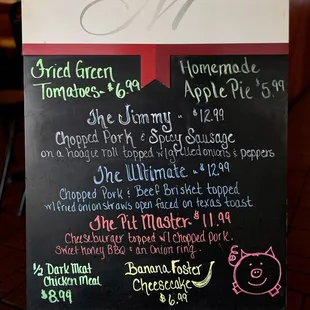 M
Fried Green
Tomatoes - $6.99
Homemade
Apple Pie $5.99
The Jimmy - $12.99
Chopped Pork & Spicy Sausage
on a hoagie roll topped w/grilled onions & peppers
The Ultimate - $12.99
Chopped Pork & Beef Brisket topped
w/fried onion straws open faced on texas toast
The Pit Master - $11.99
Cheeseburger topped w/ Chopped Pork,
Sweet Honey BBQ & an Onion ring..
1/2 Dark Meat
Chicken Meal
$8.99
Banana Foster
Cheesecake
$6.99